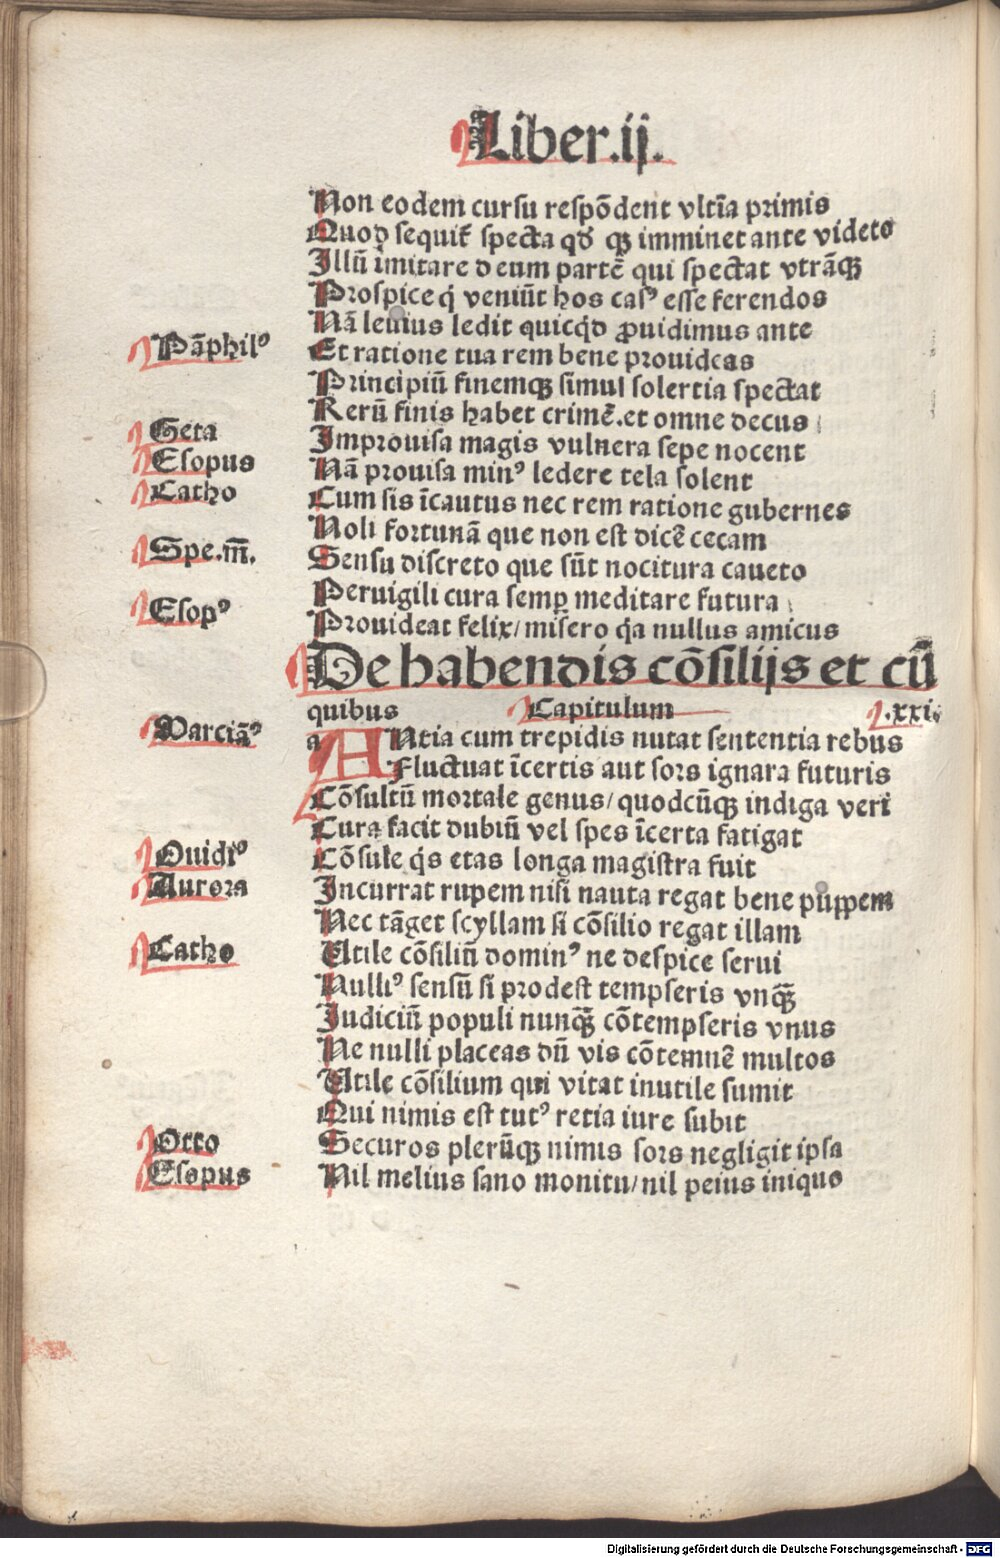 Liber.ij.
Non eodem cursu respōdent vltīa primis
Quoḍ sequit᷑ specta qd̕ qꝫ imminet ante videto
Illū īmitare deum partē qui spectat vtrāqꝫ
Prospice q̇ veniūt hos casꝰ esse ferendos
Nā leuius ledit quicq̇d ꝓuidimus ante
Pāphilꝰ Et ratione tua rem bene prouideas
Principiū finemqꝫ simul solertia spectat
Rerū finis habet crimē.et omne decus
Geta Improuisa magis vulnera sepe nocent
Esopus Nā prouisa minꝰ ledere tela solent
Catho Cum sis īcautus nec rem ratione gubernes
Noli fortunā que non est dicē cecam
Spe.m̄. Sensu discreto que sūt nocitura caueto
Peruigili cura semꝑ meditare futura
Esopꝰ Prouideat felix/misero q̇a nullus amicus
De habendis cōsilijs et cū
quibus Capitulum .xxi.
Marciāꝰ a ANtia cum trepidis nutat sententia rebus
Fluctuat īcertis aut sors ignara futuris
Cōsultū mortale genus/quodcūqꝫ indiga veri
Cura facit dubiū vel spes īcerta fatigat
Ouidiꝰ Cōsule q̇s etas longa magistra fuit
Aurora Incurrat rupem nisi nauta regat bene puppem
Nec tāget scyllam si cōsilio regat illam
Catho Utile cōsiliū dominꝰ ne despice serui
Nulliꝰ sensū si prodest tempseris vnqꝫ̄
Judiciū populi nunqꝫ̄ cōtempseris vnus
Ne nulli placeas dū vis cōtemnē multos
Utile cōsilium qui vitat inutile sumit
Qui nimis est tutꝰ retia iure subit
Otto Securos plerūqꝫ nimis sors negligit ipsa
Esopus Nil melius sano monitu/nil peius iniquo
Digitalisierung gefördert durch die Deutsche Forschungsgemeinschaft - DFG